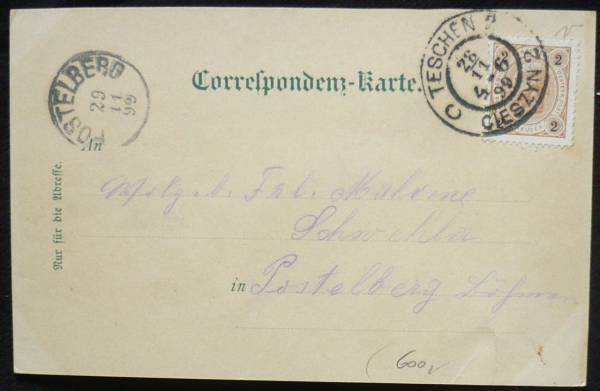 Correspondenz-Karte.
TESCHEN 2
26
11
4-6
99
C CIESZYN 2
2 2
POSTELBERG
29
11
99
An
Wolgeb. Frl. Malvine
in Postelberg Böhmen
Nur für die Adresse.
600